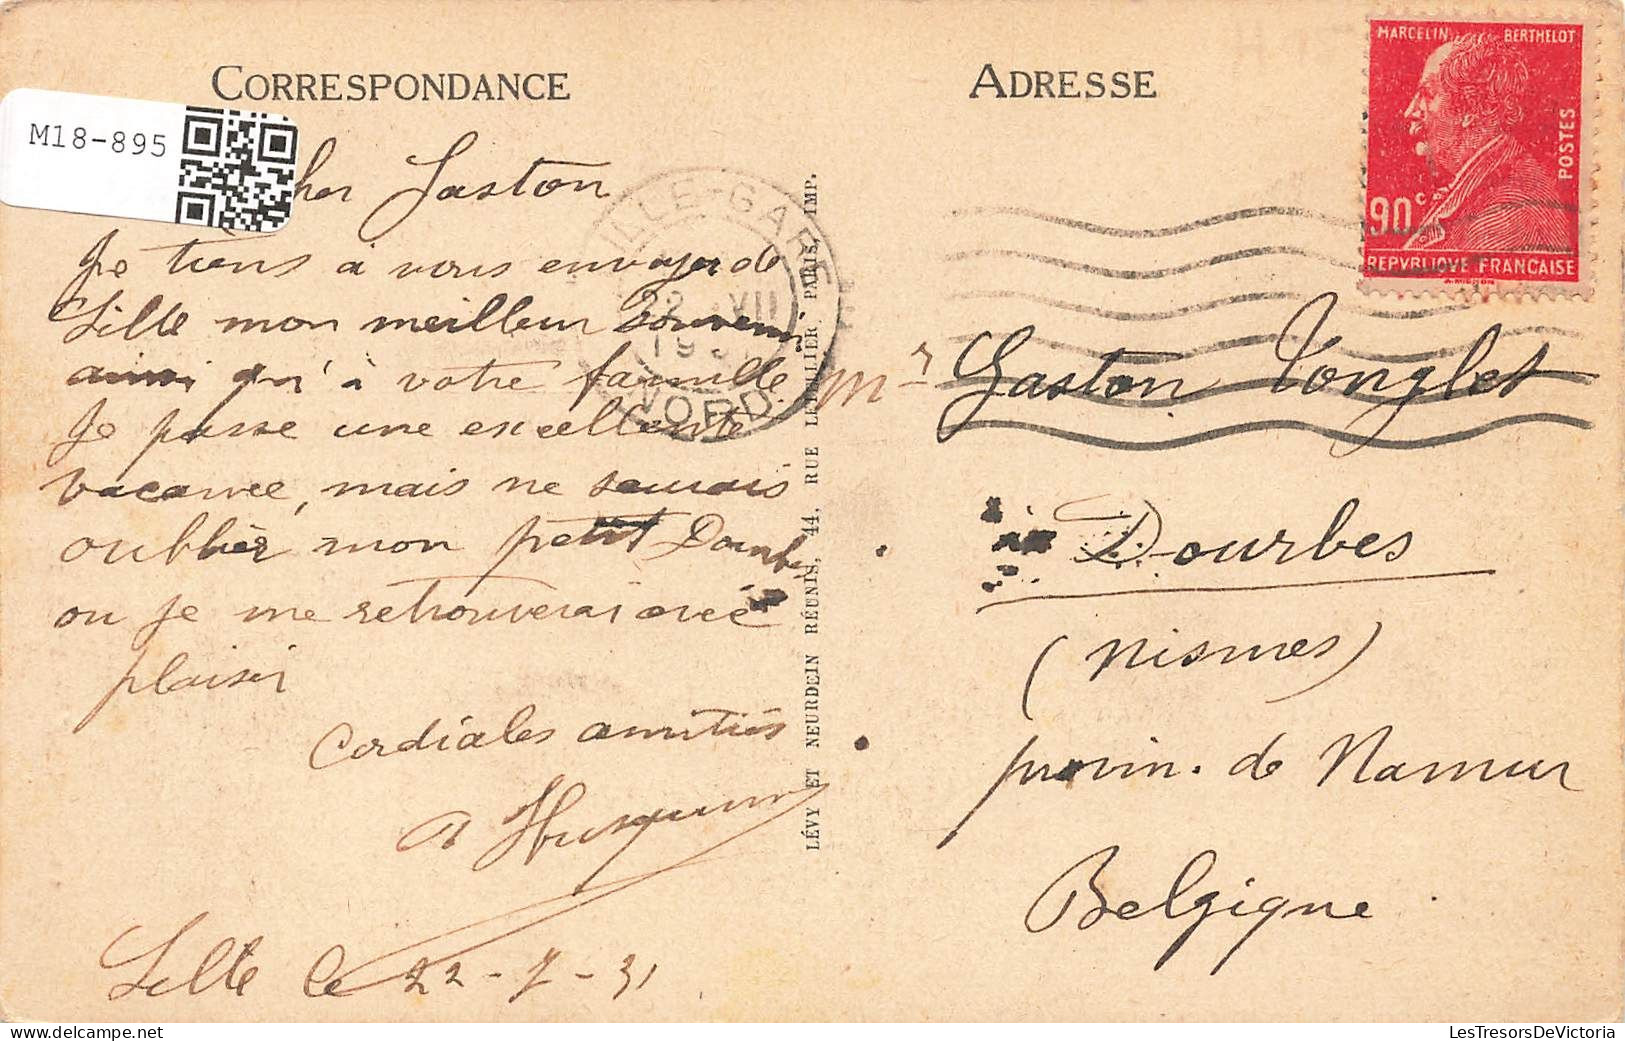 CORRESPONDANCE
M18-895
cher Gaston
Je tiens à vous envoyer de
Lille mon meilleur souvenir
ainsi qu'à votre famille
Je passe une excellente
vacance, mais ne saurais
oublier mon petit Dourbes
ou je me retrouverai avec
plaisir
Cordiales amitiés
Lille le 22-7-31
LILLE-GARE
22 VII
NORD
LÉVY ET NEURDEIN RÉUNIS, 44, RUE LETELLIER, PARIS, IMP.
ADRESSE
MARCELIN BERTHELOT
POSTES
90c
REPVBLIQVE FRANCAISE
A. MIGNON
Mr Gaston Tonglet
à Dourbes
(Nismes)
provin. de Namur
Belgique
LesTresorsDeVictoria